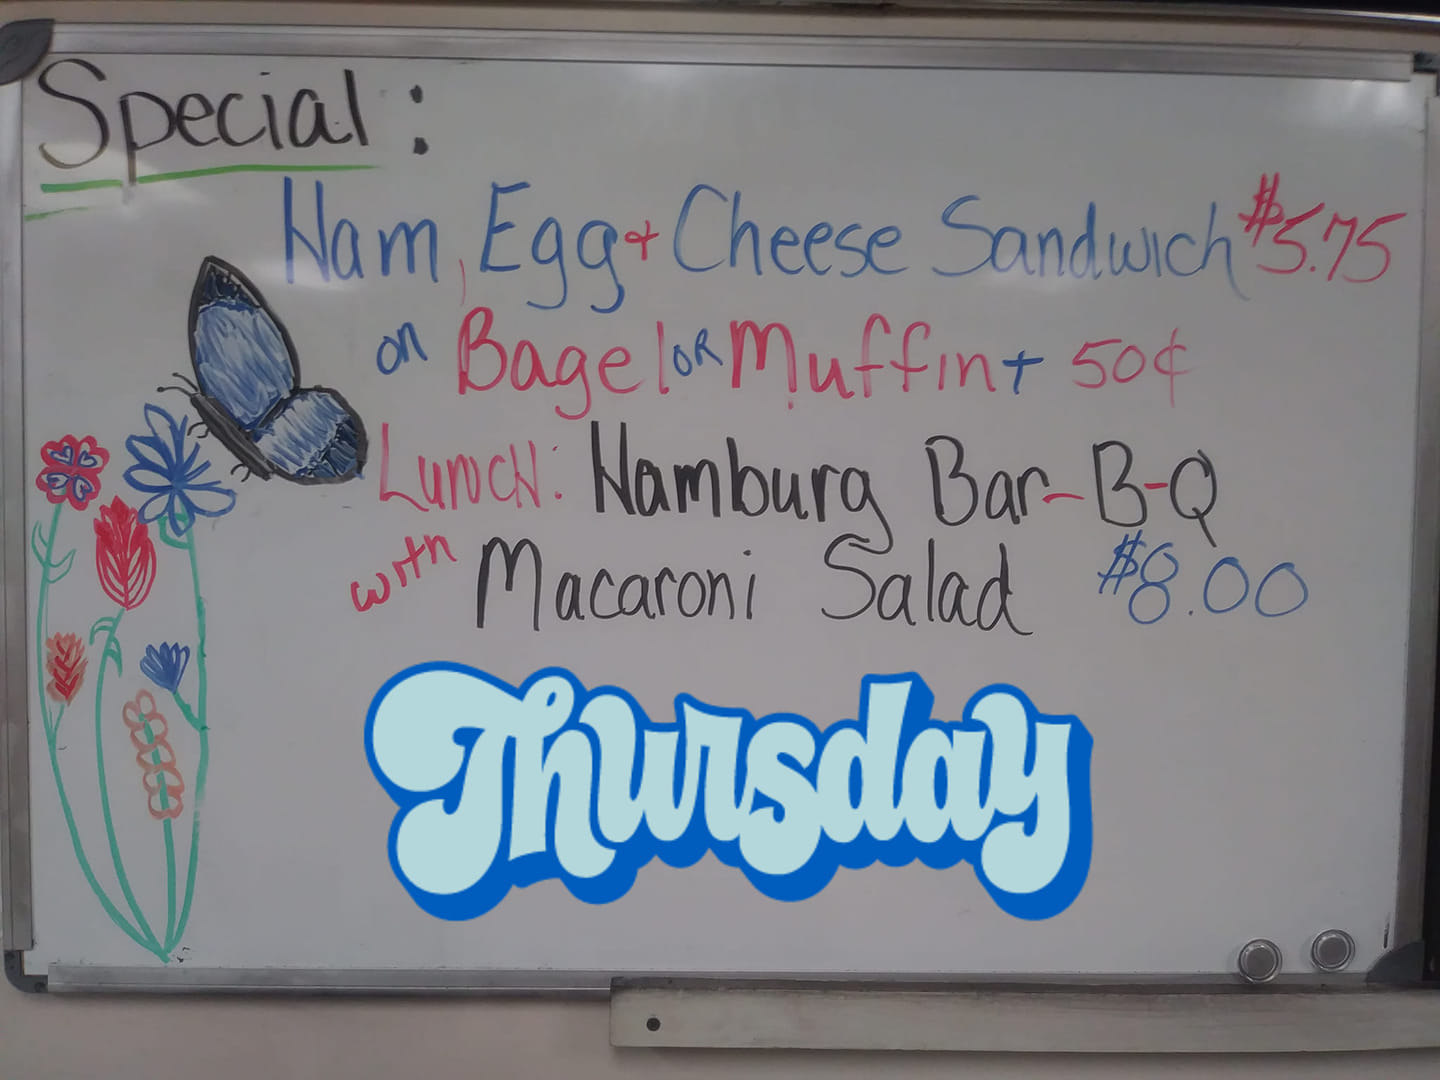 Special:
Ham, Egg + Cheese Sandwich $5.75
on Bagel OR Muffin + 50¢
Lunch: Hamburg Bar-B-Q
with Macaroni Salad $8.00
Thursday